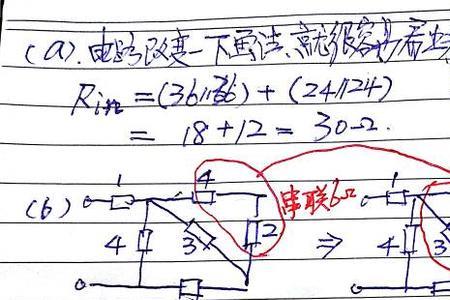 (a). 电路改变一下画法, 就很容易看出
Rin = (36//36) + (24//24)
= 18+12 = 30Ω.
(b) 1 4 串联6Ω 1
4 3 2 ⇒ 4 3